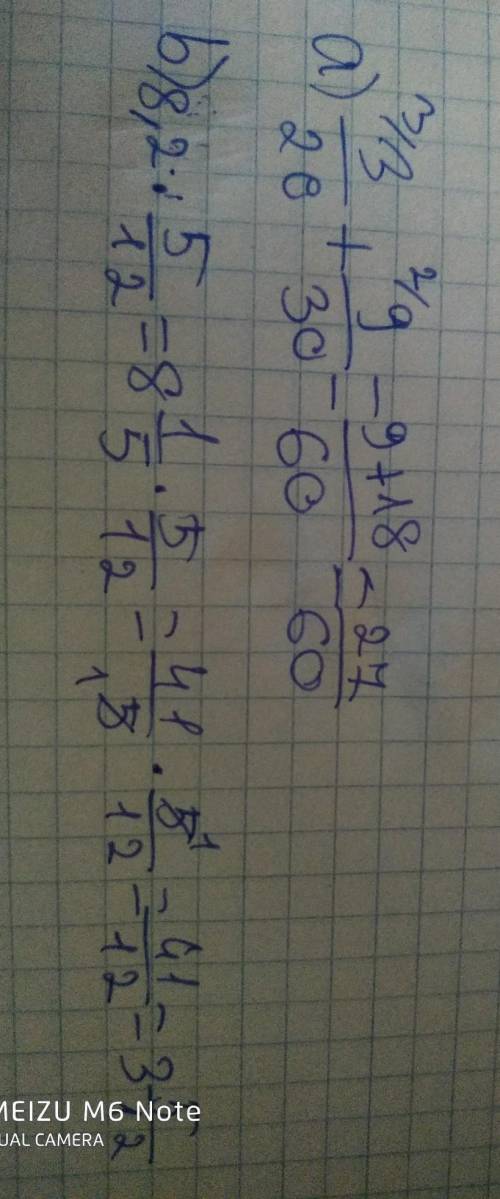 a) ³⁄3/20 + ²⁄9/30 = 9+18/60 = 27/60
b) 8,2 · 5/12 = 8 1/5 · 5/12 = 41/5 1 · 5/12 1 = 41/12 = 3 /12
MEIZU M6 Note
DUAL CAMERA